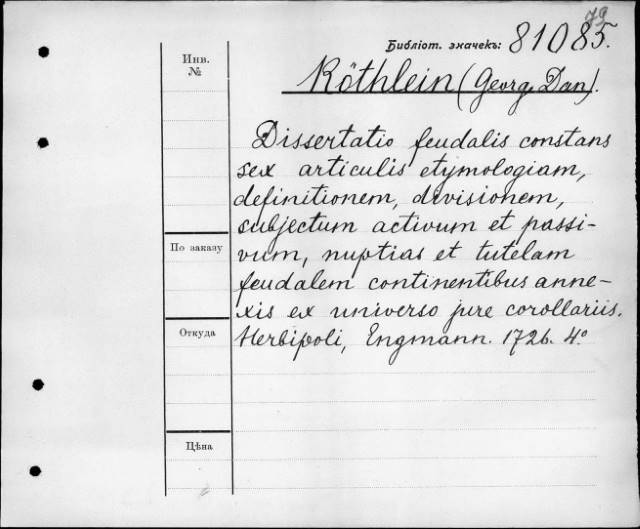 79
Библіот. значекъ: 81085.
Инв.
№
Röthlein (Georg Dan).
Dissertatio feudalis constans
sex articulis etymologiam,
definitionem, divisionem,
subjectum activum et passi-
vum, nuptias et tutelam
feudalem continentibus anne-
xis ex universo jure corollariis.
Herbipoli, Engmann. 1726. 4°
По заказу
Откуда
Цѣна